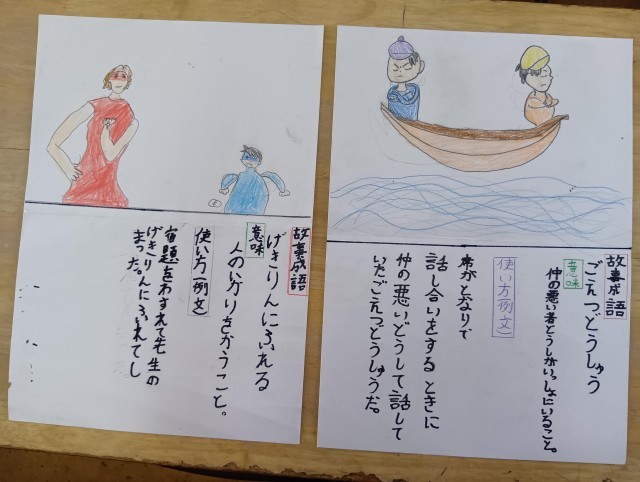 故事成語
げきりんにふれる
意味
人のいかりをかうこと。
使い方(例文)
宿題をわすれて先生の
げきりんにふれてし
まった。
故事成語
ごえつどうしゅう
意味
仲の悪い者どうしがいっしょにいること。
使い方(例文)
席がとなりで
話し合いをするときに
仲の悪いどうして話して
いたごえつどうしゅうだ。